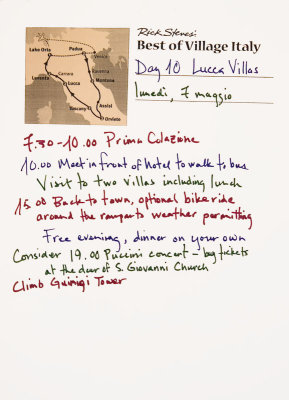 Rick Steves'
Best of Village Italy
Day 10 Lucca Villas
lunedì, 7 maggio
Lake Orta
Padua
Venice
Ravenna
Levanto
Carrara
Lucca
Montone
Assisi
Tuscany
Orvieto
7.30-10.00 Prima Colazione
10.00 Meet in front of hotel to walk to bus
Visit to two villas including lunch
15.00 Back to town, optional bike ride
around the ramparts weather permitting
Free evening, dinner on your own
Consider 19.00 Puccini concert - buy tickets
at the door of S. Giovanni Church
Climb Guinigi Tower